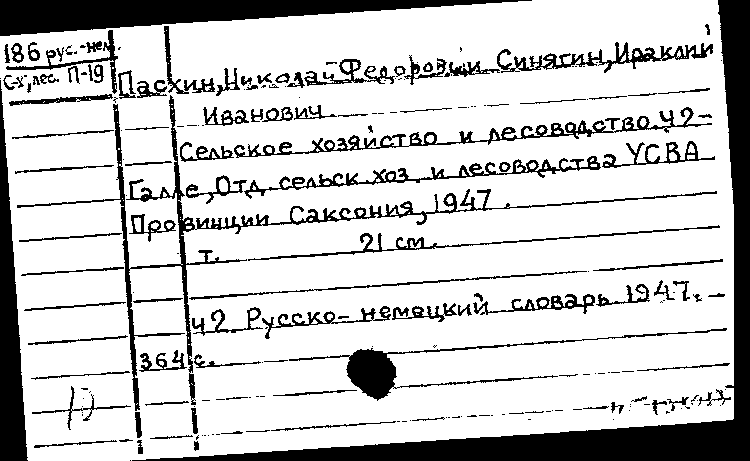 186 рус.-нем.
С-х, лес. П-19
Пасхин, Николай Федорович и Синягин, Ираклий
Иванович.
Сельское хозяйство и лесоводство. ч 2-
Галле, Отд. сельск. хоз. и лесоводства УСВА
Провинции Саксония, 1947.
т. 21 см.
ч 2. Русско-немецкий словарь. 1947. –
364 с.
10